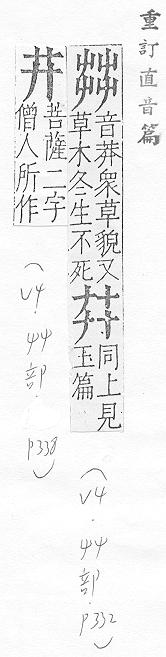 重訂直音篇
茻
音莽衆草貌又
草木冬生不死
同上見
玉篇
(V4.艸部.P332)
𦬇
菩薩二字
僧人所作
(V4.艸部.P338)